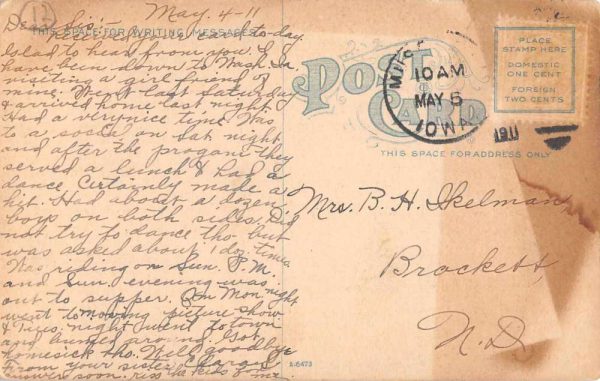 13
May. 4-11
Dear Sis:-
to-day.
THIS SPACE FOR WRITING MESSAGES
Glad to hear from you. I
have been down to Wash. Ia
visiting a girl friend of
mine. Went last Saturday
& arrived home last night.
Had a very nice time. Was
to a social on Sat night
and after the program they
served a lunch & had a
dance. Certainly made a
hit. Had about a dozen
boys on both sides. Did
not try to dance tho but
was asked about 1 doz. times
Was riding on Sun. P.M.
and Sun. evening was
out to supper. On Mon. night
went to moving picture show
& Tues. night went to town
and around. Got
homesick tho. Well goodbye
From your sister
answer soon. Kiss the kids for me.
POST CARD
10 AM
MAY 5
IOWA
1911
PLACE
STAMP HERE
DOMESTIC
ONE CENT
FOREIGN
TWO CENTS
THIS SPACE FOR ADDRESS ONLY
Mrs. B. H. Ikelman
Brockett,
N. D.
A-6473